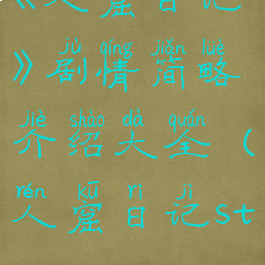 《人窟日记
jù qíng jiǎn lüè
》剧情简略
jiè shào dà quán
介绍大全（
rén kū rì jì
人窟日记st